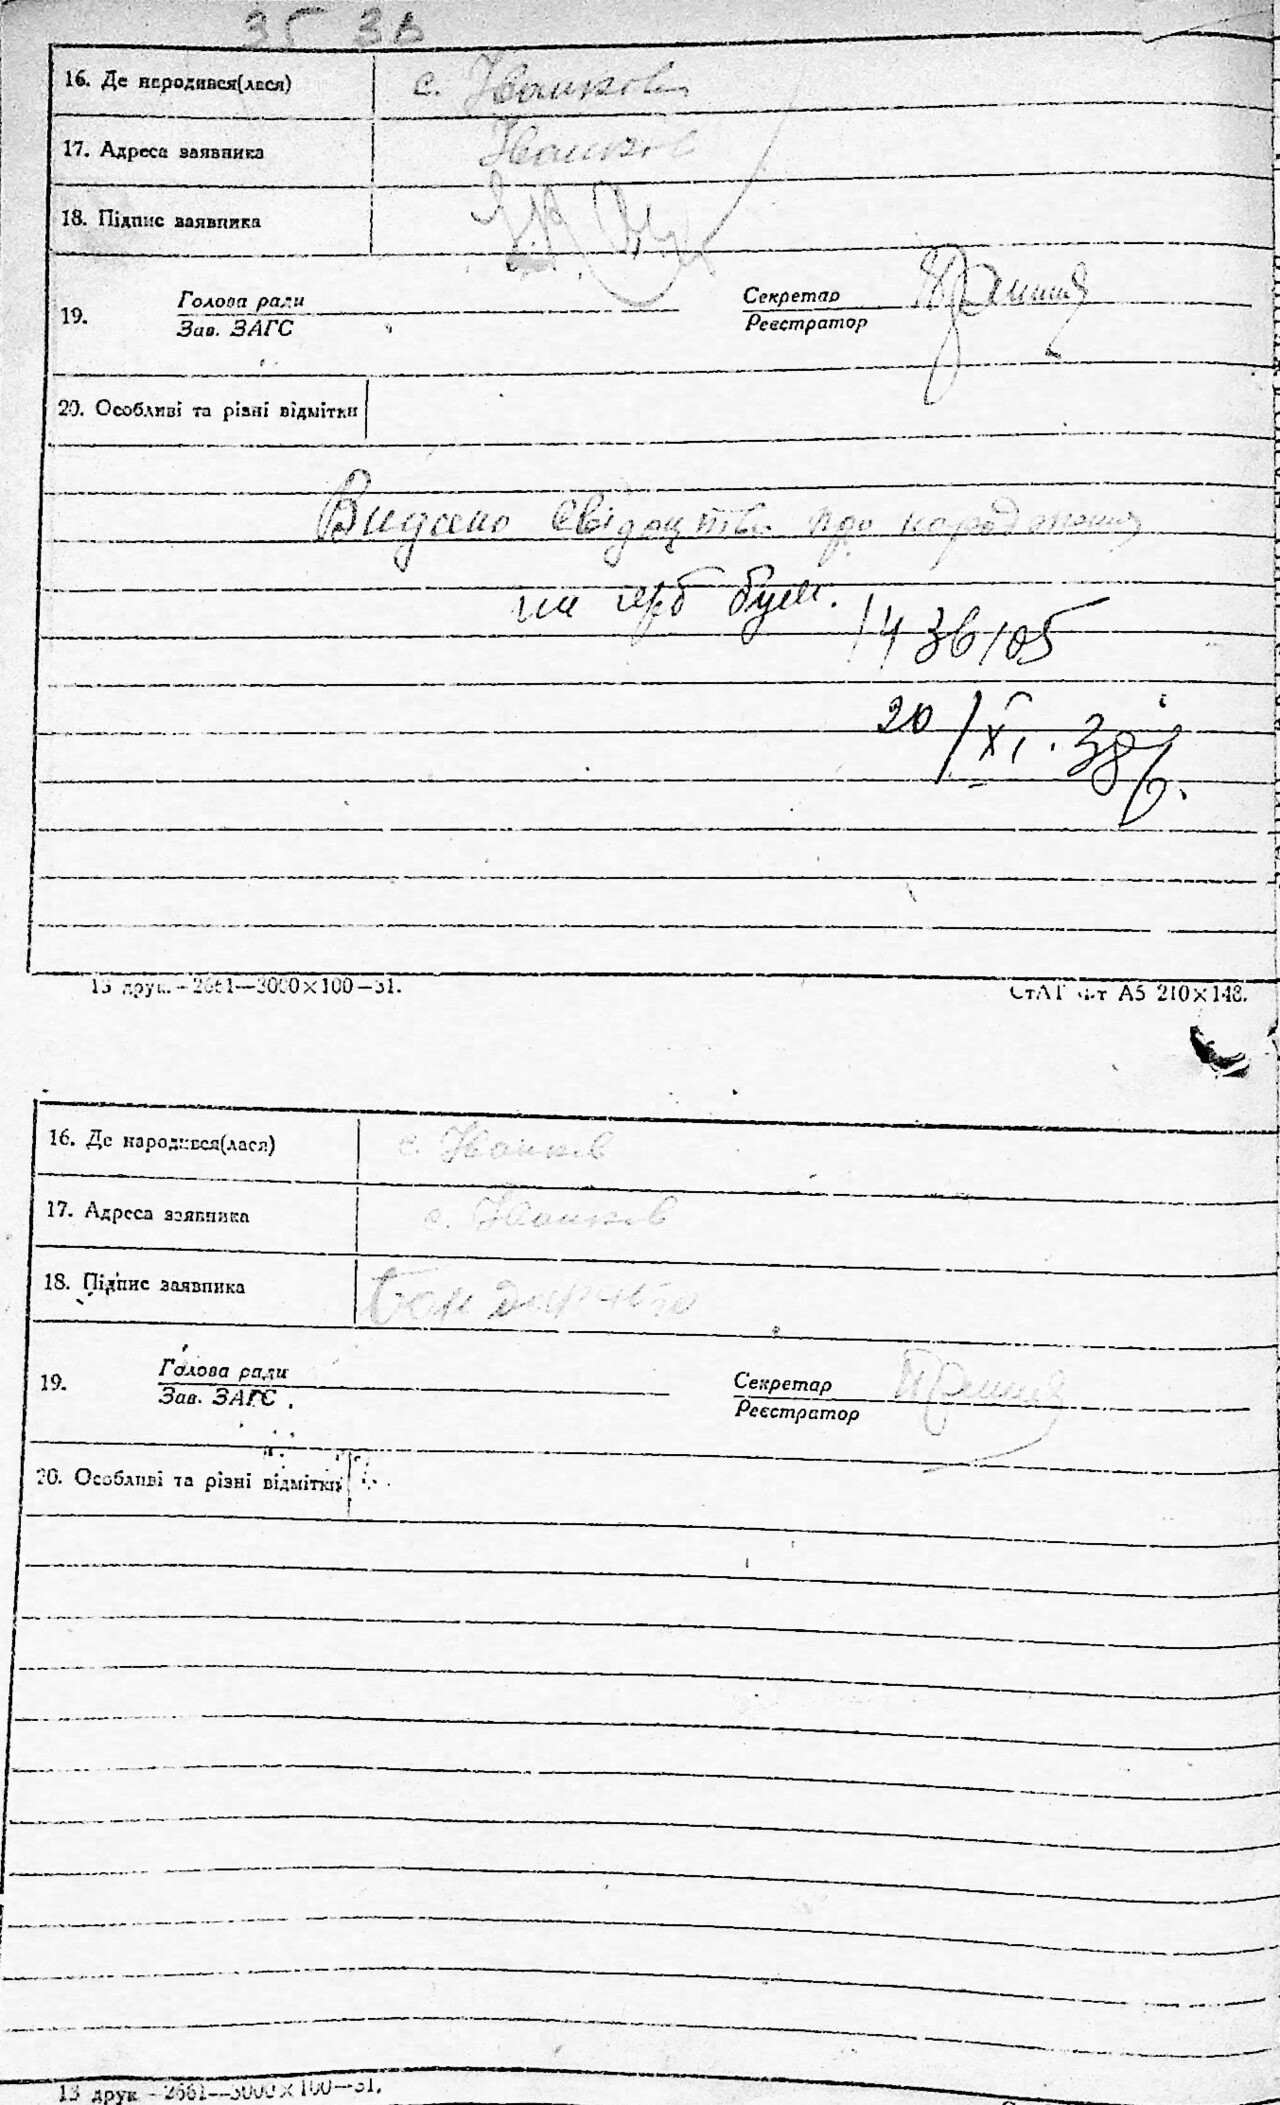 35 36
16. Де народився(лася) с. Іванков
17. Адреса заявника Іванків
18. Підпис заявника
19. Голова ради Секретар
Зав. ЗАГС Реєстратор
20. Особливі та різні відмітки
Видано свідоцтво про народження
на герб бум. 1436105
20/XI. 38 р.
13 друк. - 2661—3000×100—31. СтАТ ф-т А5 210×148.
16. Де народився(лася) с. Іванків
17. Адреса заявника с. Іванків
18. Підпис заявника
19. Голова ради Секретар
Зав. ЗАГС Реєстратор
20. Особливі та різні відмітки
13 друк - 2661—3000×100—31.